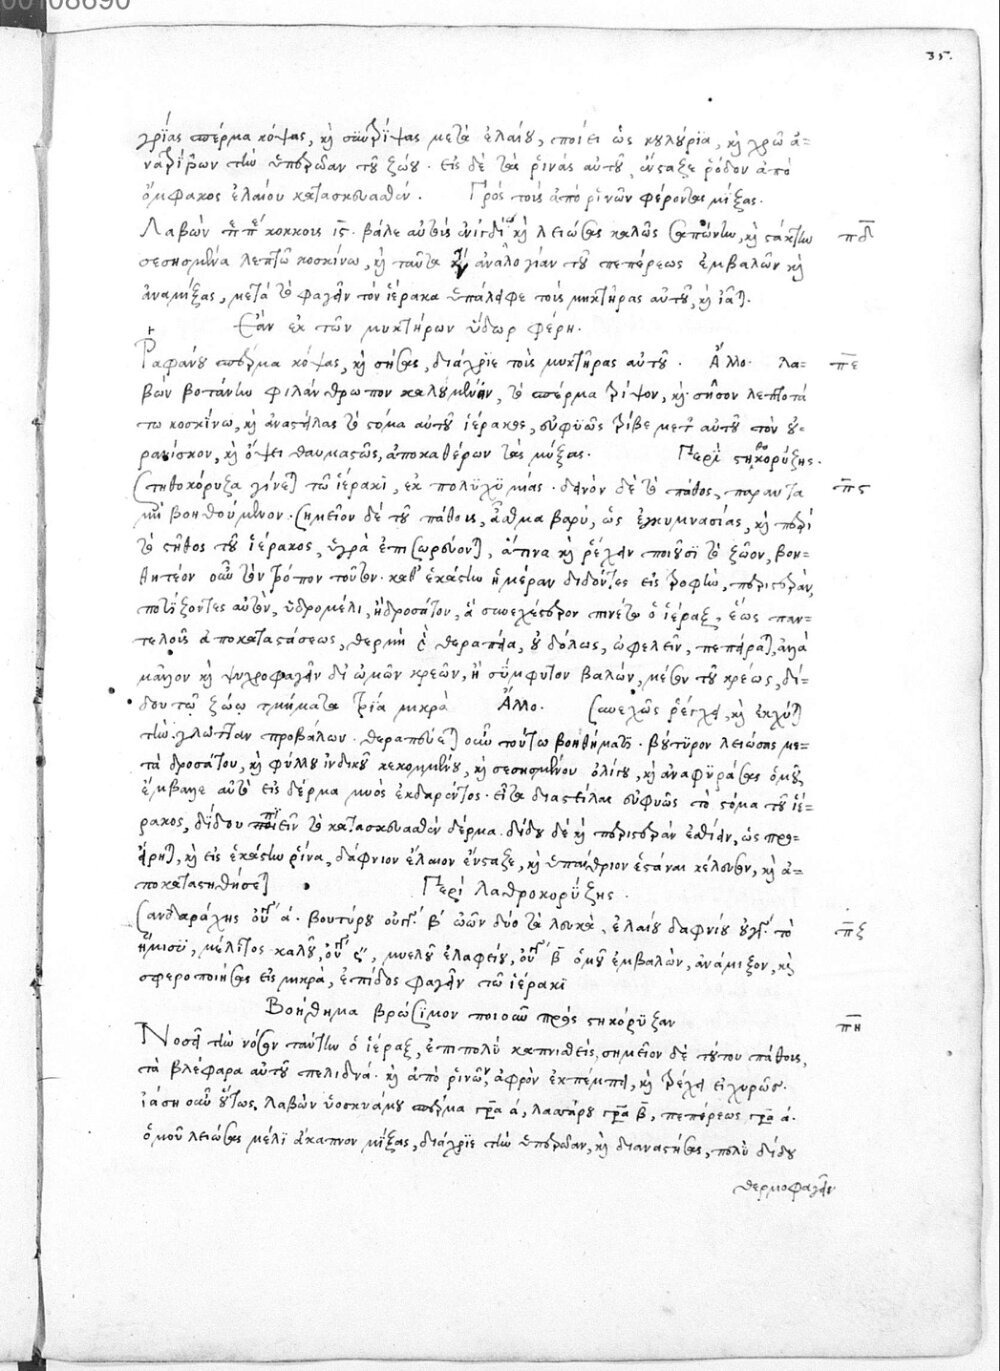 00108690
35.
γρίας σπέρμα κόψας, καὶ συντρίψας μετὰ ἐλαίου, ποίει ὡς κουλούρια, καὶ χρῶ ἀ=
νατρίβων τὴν ὑπερώαν τοῦ ζώου. εἰς δὲ τὰς ῥῖνας αὐτοῦ, ἔνσταξε ῥόδον ἀπὸ
ὄμφακος ἐλαίου κατασκευασθέν. Πρὸς τοὺς ἀπὸ ῥινῶν φέροντας μύξας.
Λαβὼν κόκκους ις. βάλε αὐτοὺς καὶ λειώσας καλῶς σαπώνιν, καὶ στάκτιν πδ
σεσησμένα λεπτῷ κοσκίνῳ, καὶ ταῦτα ἀναλογίαν τοῦ πεπέρεως ἐμβαλὼν καὶ
ἀναμίξας, μετὰ τὸ φαγεῖν τὸν ἱέρακα ὑπάλειφε τοὺς μυκτῆρας αὐτοῦ, καὶ ἰᾶται.
Ἐὰν ἐκ τῶν μυκτήρων ὕδωρ φέρῃ.
Ῥαφάνου σπέρμα κόψας, καὶ σήσας, διάχριε τοὺς μυκτῆρας αὐτοῦ. Ἄλλο. λα= πε
βὼν βοτάνην φιλάνθρωπον καλουμένην, τὸ σπέρμα τρίψον, καὶ σῆσον λεπτοτά
τῳ κοσκίνῳ, καὶ ἀναστείλας τὸ στόμα αὐτοῦ ἱέρακος, εὐφυῶς τρίβε μετ' αὐτοῦ τὸν οὐ=
ρανίσκον, καὶ ὄψει θαυμαστῶς, ἀποκαθέρων τὰς μύξας. Περὶ στηθοκορύζης.
Στηθοκόρυζα γίνεται τῷ ἱέρακι, ἐκ πολυχυμίας. δεινὸν δὲ τὸ πάθος, παραυτὰ πς
μὴ βοηθούμενον. σημεῖον δὲ τοῦ πάθους, ἆσθμα βαρύ, ὡς ἐγκυμνασίας, καὶ περὶ
τὸ στῆθος τοῦ ἱέρακος, ὑγρὰ ἐπισωρεύονται, ἅτινα καὶ ῥέγχειν ποιοῦσι τὸ ζῶον, βοη=
θητέον οὖν τὸν τρόπον τοῦτον. καθ' ἑκάστην ἡμέραν διδόντες εἰς τροφὴν, περιστερὰν,
ποτίζοντες αὐτὸν, ὑδρομέλι, ἢ δροσάτον, ἃ συνεχέστερον πινέτω ὁ ἱέραξ, ἕως παν=
τελοῦς ἀποκαταστάσεως, θερμὴ θεραπεία, οὐδόλως, ὠφελεῖν, πεπείραται, ἀλλὰ
μᾶλλον καὶ ψυχροφαγεῖν δι' ὠμῶν κρεῶν, ἢ σύμφυτον βαλὼν, μέσον τοῦ κρέως, δί=
δου τῷ ζώῳ τμήματα τρία μικρά Ἄλλο. Συνεχῶς ῥέγχει, καὶ ἐκχύει
τὴν γλῶτταν προβάλων. θεραπεύεται οὖν τούτῳ βοηθήματι. βούτυρον λειώσας με=
τὰ δροσάτου, καὶ φύλλου ἰνδικοῦ κεκομμένου, καὶ σεσησμένου ὀλίγου, καὶ ἀναφυράσας ὁμοῦ,
ἔμβαλλε αὐτὸ εἰς δέρμα μυὸς ἐκδαρόντος. εἶτα διαστείλαι εὐφυῶς τὸ στόμα τοῦ ἱέ=
ρακος, δίδου πιεῖν τὸ κατασκευασθὲν δέρμα. δίδου δὲ καὶ περιστερὰν ἐσθίειν, ὡς προ=
είρηται, καὶ εἰς ἑκάστην ῥῖνα, δάφνιον ἔλαιον ἔνσταξε, καὶ ὑπαίθριον ἱστάναι κέλευσον, καὶ ἀ=
ποκαταστηθήσεται Περὶ λαθροκορύζης.
Σανδαράχης οὐγ. α. βουτύρου οὐγ. β ὠῶν δύο τὰ λευκά, ἐλαίου δαφνίου οὐγ. τὸ πζ
ἥμισυ, μέλιτος καλοῦ, οὐγ ς, μυελοῦ ἐλαφείου, οὐγ β ὁμοῦ ἐμβαλὼν, ἀνάμιξον, καὶ
σφεροποιήσας εἰς μικρὰ, ἐπίδος φαγεῖν τῷ ἱέρακι
Βοήθημα βρώσιμον ποιοῦν πρὸς στηκόρυζαν
Νοσεῖ τὴν νόσον ταύτην ὁ ἱέραξ, ἐπιπολὺ καπνισθείς. σημεῖον δὲ τούτου πάθους, πη
τὰ βλέφαρα αὐτοῦ πελιδνά. καὶ ἀπὸ ῥινῶν, ἀφρὸν ἐκπέμπει, καὶ τρέχει εἰχυρῶς.
ἰάση οὖν οὕτως. λαβὼν ὑοσκυάμου σπέρμα γρα α, λαπάρου γρα β, πεπέρεως γρα α.
ὁμοῦ λειώσας μέλι ἄκαπνον μίξας, διάχριε τὴν ὑπερώαν, καὶ διαναστήσας, πολὺ δίδου
θερμοφαγεῖν